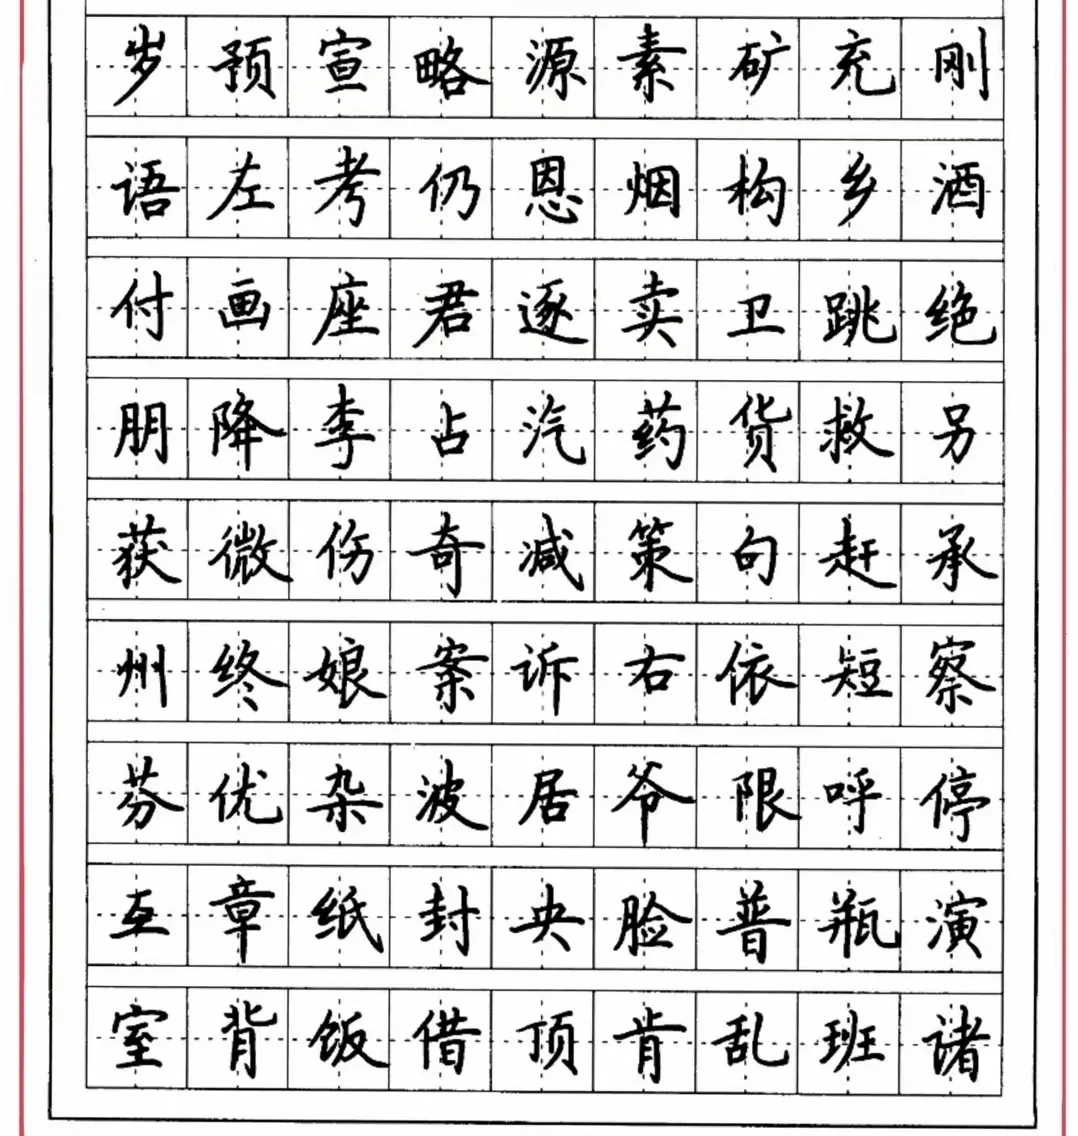 岁预宣略源素矿充刚
语左考仍恩烟构乡酒
付画座君逐卖卫跳绝
朋降李占汽药货救另
获微伤奇减策句赶承
州终娘案诉右依短察
芬优杂波居爷限呼停
互章纸封央脸普瓶演
室背饭借顶肯乱班诸